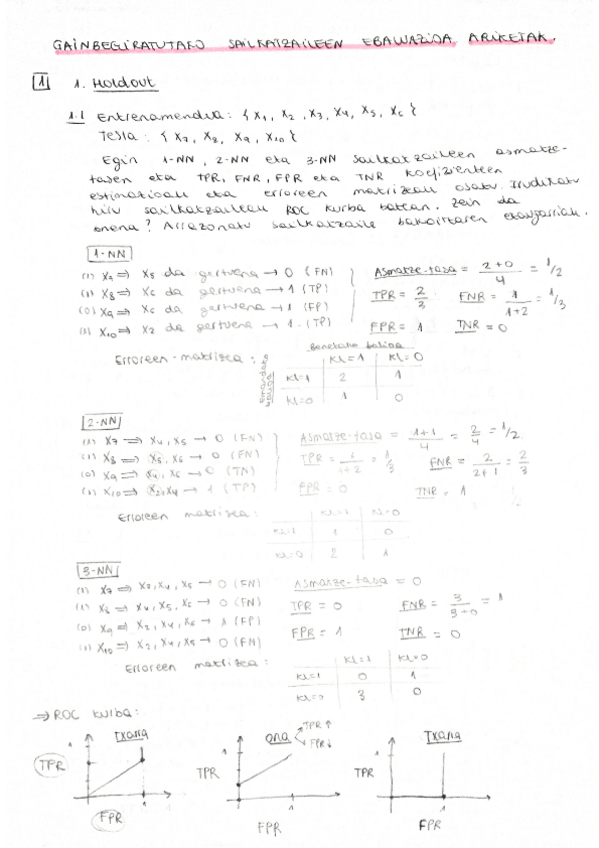 GAINBEGIRATUTAKO SAILKATZAILEEN EBALUAZIOA ARIKETAK.
1 1. Holdout
1.1 Entrenamendua: { X1, X2, X3, X4, X5, X6 }
Testa: { X7, X8, X9, X10 }
Egin 1-NN, 2-NN eta 3-NN sailkatzaileen asmatze-
tasen eta TPR, FNR, FPR eta TNR koefizienteen
estimazioak eta erroreen matrizeak osatu. Irudikatu
hiru sailkatzaileak ROC kurba batean. Zein da
onena? Arrazonatu sailkatzaile bakoitzaren ezaugarriak.
1-NN
(1) X7 ⇒ X5 da gertuena → 0 (FN)
(1) X8 ⇒ X6 da gertuena → 1 (TP)
(0) X9 ⇒ X6 da gertuena → 1 (FP)
(1) X10 ⇒ X2 da gertuena → 1 (TP)
Asmatze-tasa = 2+0/4 = 1/2
TPR = 2/3 FNR = 1/1+2 = 1/3
FPR = 1 TNR = 0
Benetako balioa
Erroreen matrizea: Kl=1 Kl=0
Emandako balioa
Kl=1 2 1
Kl=0 1 0
2-NN
(1) X7 ⇒ X4, X5 → 0 (FN)
(1) X8 ⇒ X5, X6 → 0 (FN)
(0) X9 ⇒ X4, X6 → 0 (TN)
(1) X10 ⇒ X2, X4 → 1 (TP)
Asmatze-tasa = 1+1/4 = 2/4 = 1/2
TPR = 1/1+2 = 1/3 FNR = 2/2+1 = 2/3
FPR = 0 TNR = 1
Erroreen matrizea: Kl=1 Kl=0
Kl=1 1 0
Kl=0 2 1
3-NN
(1) X7 ⇒ X2, X4, X5 → 0 (FN)
(1) X8 ⇒ X4, X5, X6 → 0 (FN)
(0) X9 ⇒ X2, X4, X6 → 1 (FP)
(1) X10 ⇒ X2, X4, X5 → 0 (FN)
Asmatze-tasa = 0
TPR = 0 FNR = 3/3+0 = 1
FPR = 1 TNR = 0
Erroreen matrizea: Kl=1 Kl=0
Kl=1 0 1
Kl=0 3 0
⇒ ROC kurba:
Txarra ona TPR ↑ FPR ↓ Txarra
TPR TPR TPR
1 1 1
FPR FPR FPR